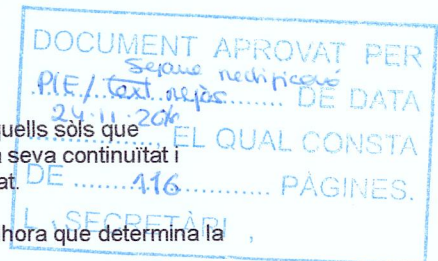 DOCUMENT APROVAT PER
PIE / text refós DE DATA
24·11·20
EL QUAL CONSTA
DE ......116...... PÀGINES.
L SECRETÀRI,
quells sòls que
a seva continuïtat i
at.
hora que determina la